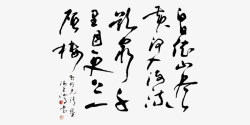 白日依山尽
黄河入海流
欲穷千
里目更上一
层楼